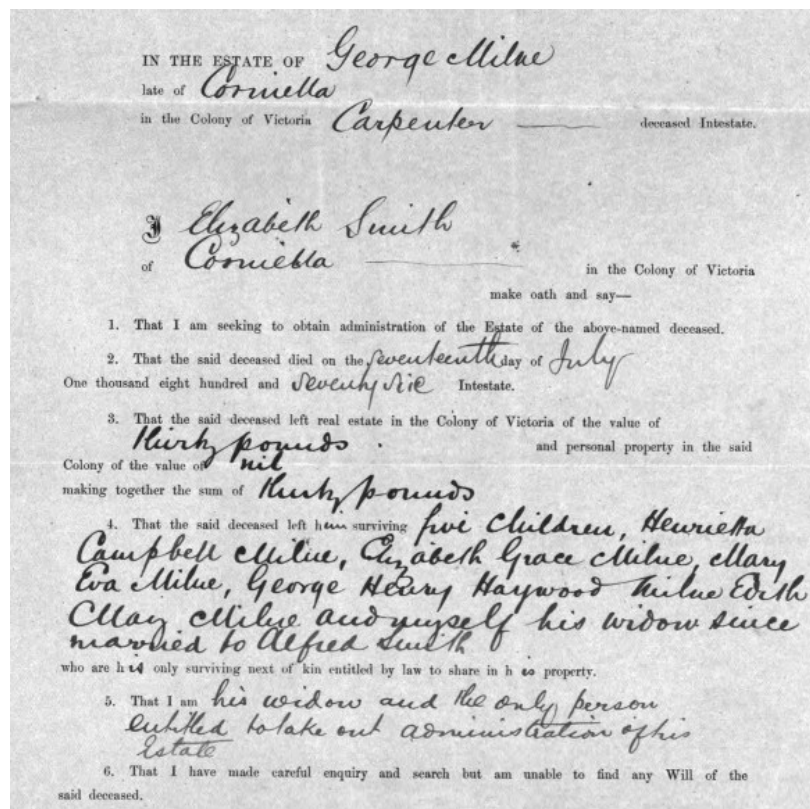 IN THE ESTATE OF George Milne
late of Corinella
in the Colony of Victoria Carpenter deceased Intestate.
I Elizabeth Smith
of Corinella in the Colony of Victoria
make oath and say—
1. That I am seeking to obtain administration of the Estate of the above-named deceased.
2. That the said deceased died on the seventeenth day of July
One thousand eight hundred and seventy six Intestate.
3. That the said deceased left real estate in the Colony of Victoria of the value of
thirty pounds and personal property in the said
Colony of the value of nil
making together the sum of thirty pounds
4. That the said deceased left him surviving five children, Henrietta
Campbell Milne, Elizabeth Grace Milne, Mary
Eva Milne, George Henry Haywood Milne Edith
May Milne and myself his widow since
married to Alfred Smith
who are his only surviving next of kin entitled by law to share in his property.
5. That I am his widow and the only person
entitled to take out administration of his
Estate
6. That I have made careful enquiry and search but am unable to find any Will of the
said deceased.